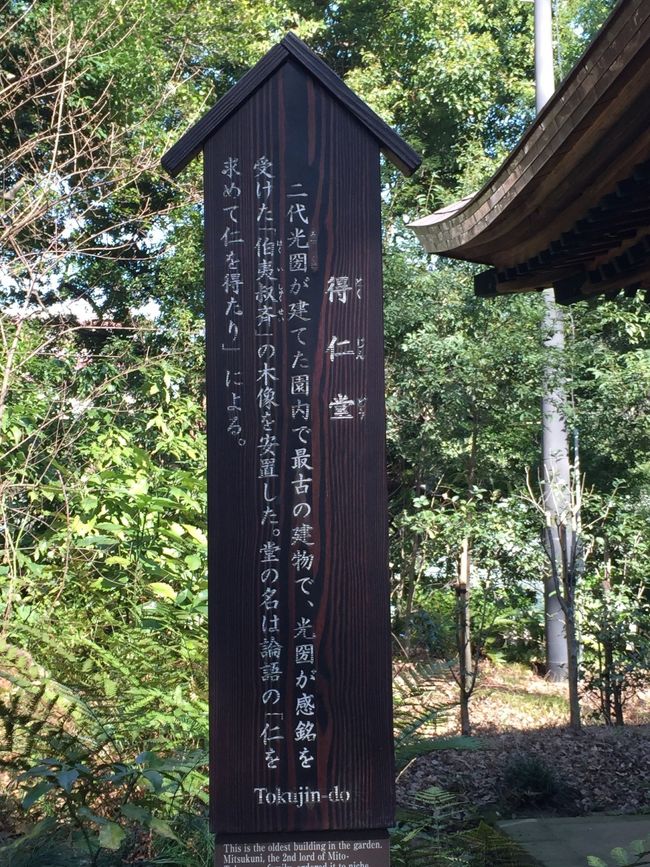 得仁堂
二代光圀が建てた園内で最古の建物で、光圀が感銘を
受けた「伯夷叔斉」の木像を安置した。堂の名は論語の「仁を
求めて仁を得たり」による。
Tokujin-do
This is the oldest building in the garden.
Mitsukuni, the 2nd lord of Mito-